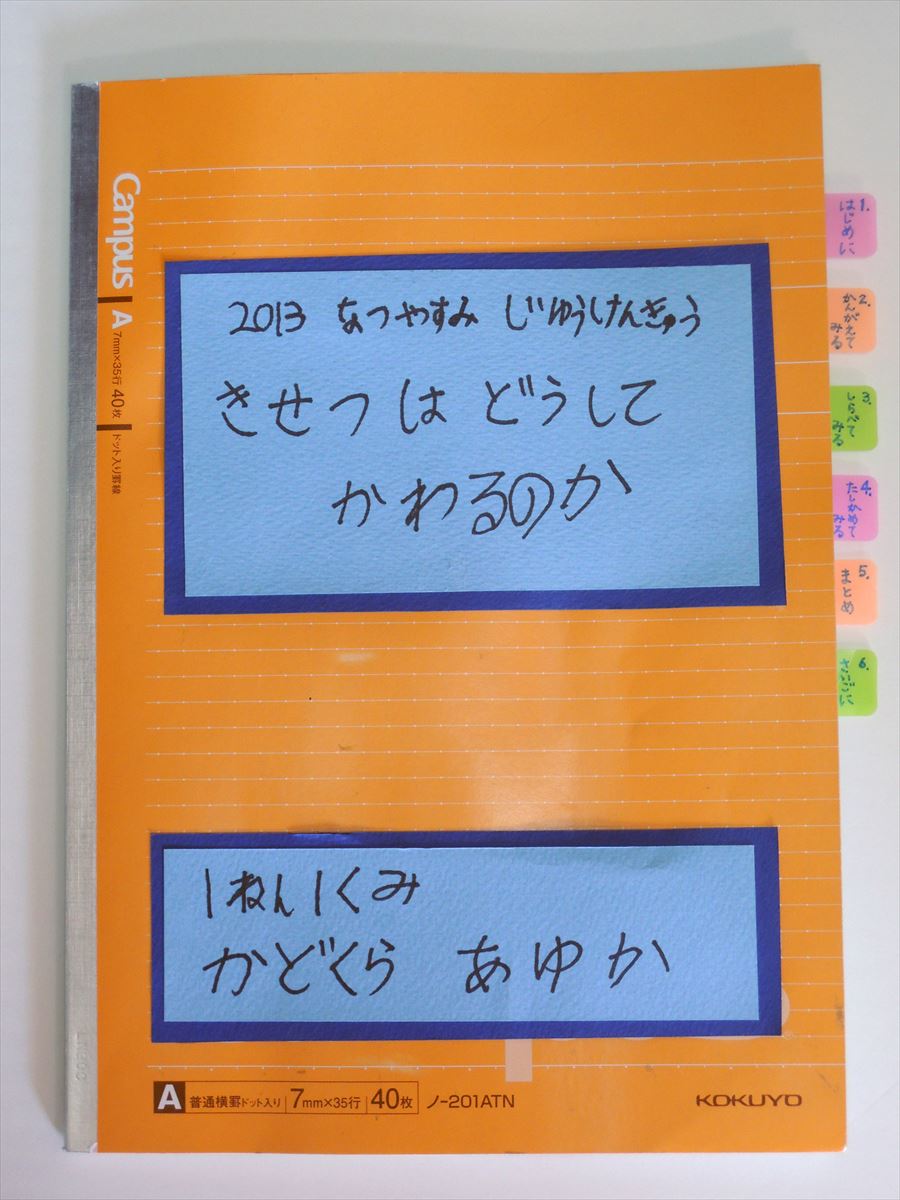 Campus A 7mm×35行 40枚 ドット入り罫線
2013 なつやすみ じゆうけんきゅう
きせつは どうして
かわるのか
1ねん1くみ
かどくら あゆか
A 普通横罫ドット入り 7mm×35行 40枚 ノ-201ATN
KOKUYO
1. はじめに
2. かんがえて
みる
3. しらべて
みる
4. たしかめて
みる
5. まとめ
6. さいごに